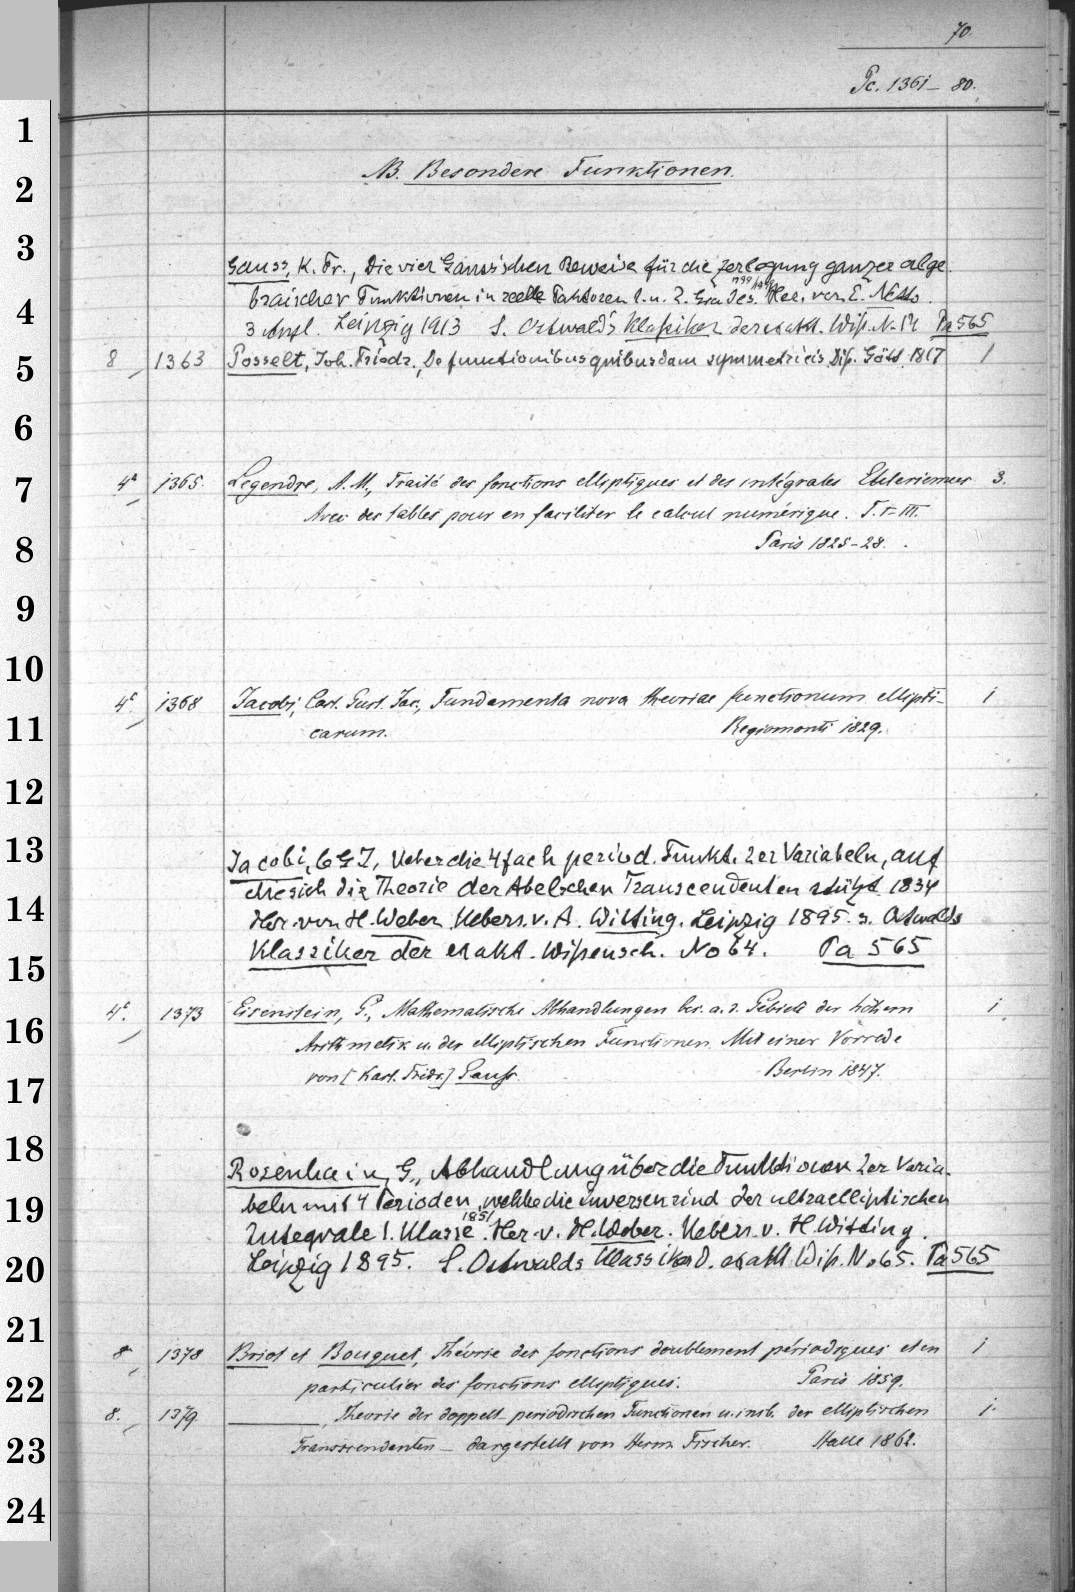 70.
Pc. 1361– 80.
1
2
3
4
5
6
7
8
9
10
11
12
13
14
15
16
17
18
19
20
21
22
23
24
NB. Besondere Funktionen.
Gauss, K. Fr., Die vier Gauss'schen Beweise für die Zerlegung ganzer alge
braischer Funktionen in reelle Faktoren 1. u. 2. Grades. Her. von E. Netto.
3 Aufl. Leipzig 1913 S. Ostwald's Klassiker der exakt. Wiss. No 14 Pa 565
8 1363 Posselt, Joh. Friedr., De functionibus quibusdam symmetricis Diss. Gött. 1817 1
4° 1365. Legendre, A. M., Traité des fonctions elliptiques et des intégrales Eulériennes 3.
Avec des tables pour en faciliter le calcul numérique. T. I–III.
Paris 1825–28.
4° 1368 Jacobi, Carl. Gust. Jac., Fundamenta nova theoriae functionum ellipti– 1
carum. Regiomonti 1829.
Jacobi, C G J, Ueber die 4fach period. Funkt. 2er Variabeln, auf
die sich die Theorie der Abelschen Transcendenten stützt 1834
Her. von H. Weber. Uebers. v. A. Witting. Leipzig 1895. s. Ostwalds
Klassiker der exakt. Wissensch. No 64. Pa 565
4°. 1373 Eisenstein, G., Mathematische Abhandlungen bes. a. d. Gebiete der höhern 1
Arithmetik u. der elliptischen Functionen. Mit einer Vorrede
von [Karl. Fridr.] Gauss. Berlin 1847.
Rosenhain, G., Abhandlung über die Funktionen 2er Varia-
beln mit 4 Perioden, welche die inversen sind der ultraelliptischen
Integrale 1. Klasse. 1851 Her. v. H. Weber. Uebers. v. H. Witting.
Leipzig 1895. S. Ostwalds Klassiker d. exakt Wiss. No 65. Pa 565
8 1378 Briot et Bouquet, Théorie des fonctions doublement périodiques et en 1
particulier des fonctions elliptiques. Paris 1859.
8. 1379 ————, Theorie der doppelt periodischen Functionen u. insb. der elliptischen 1.
Transscendenten – dargestellt von Herm. Fischer. Halle 1862.